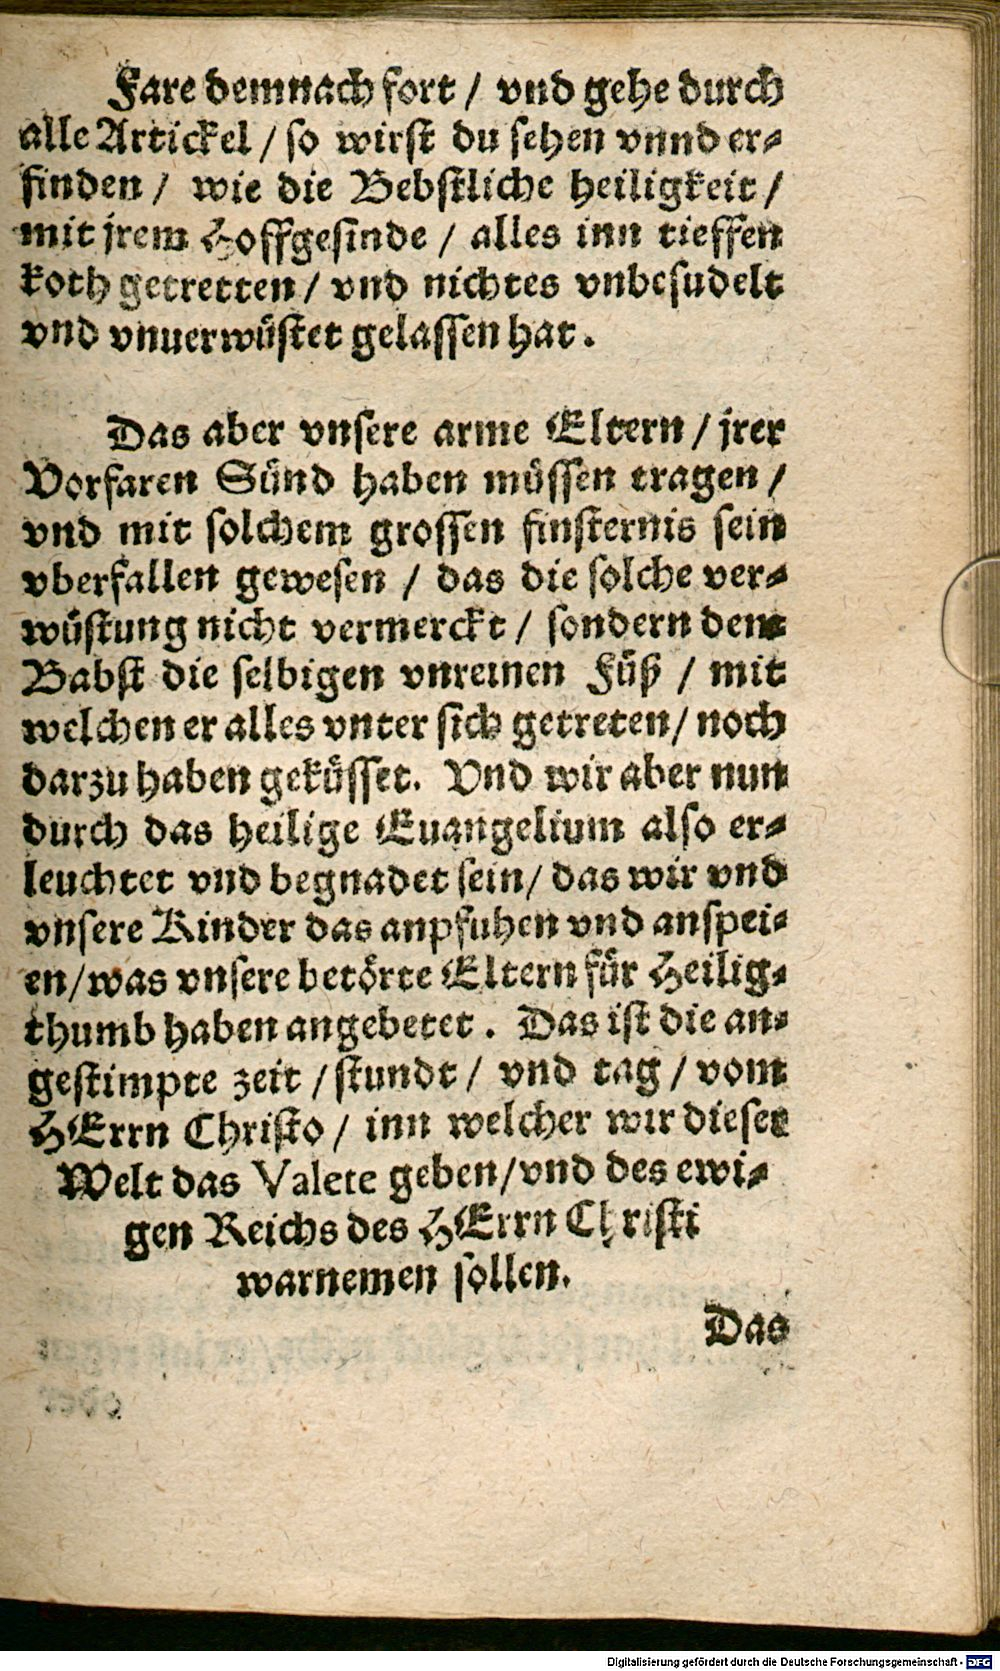 Fare demnach fort / vnd gehe durch
alle Artickel / so wirst du sehen vnnd er-
finden / wie die Bebstliche heiligkeit /
mit jrem Hoffgesinde / alles inn tieffen
koth getretten / vnd nichtes vnbesudelt
vnd vnuerwüstet gelassen hat.
Das aber vnsere arme Eltern / jrer
Vorfaren Sünd haben müssen tragen /
vnd mit solchem grossen finsternis sein
vberfallen gewesen / das die solche ver-
wüstung nicht vermerckt / sondern dem
Babst die selbigen vnreinen Füß / mit
welchen er alles vnter sich getreten / noch
darzu haben geküsset. Vnd wir aber nun
durch das heilige Euangelium also er-
leuchtet vnd begnadet sein / das wir vnd
vnsere Kinder das anpfuhen vnd anspei-
en / was vnsere betörte Eltern für Heilig-
thumb haben angebetet. Das ist die an-
gestimpte zeit / stundt / vnd tag / vom
HErrn Christo / inn welcher wir dieser
Welt das Valete geben / vnd des ewi-
gen Reichs des HErrn Christi
warnemen sollen.
Das
Digitalisierung gefördert durch die Deutsche Forschungsgemeinschaft - DFG